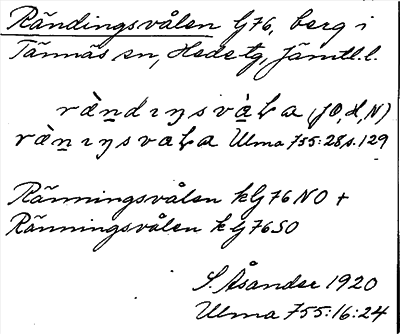 Rändingsvålen G76, berg i
Tännäs sn, Hede tg, Jämtl. l.
rä̀ndıŋsvàɫa (JO, d, N)
rä̀nıŋsvaɫa Ulma 755:28 s. 129
Ränningsvålen k G76NO +
Ränningsvålen k G76SO
S. Åsander 1920
Ulma 755:16:24